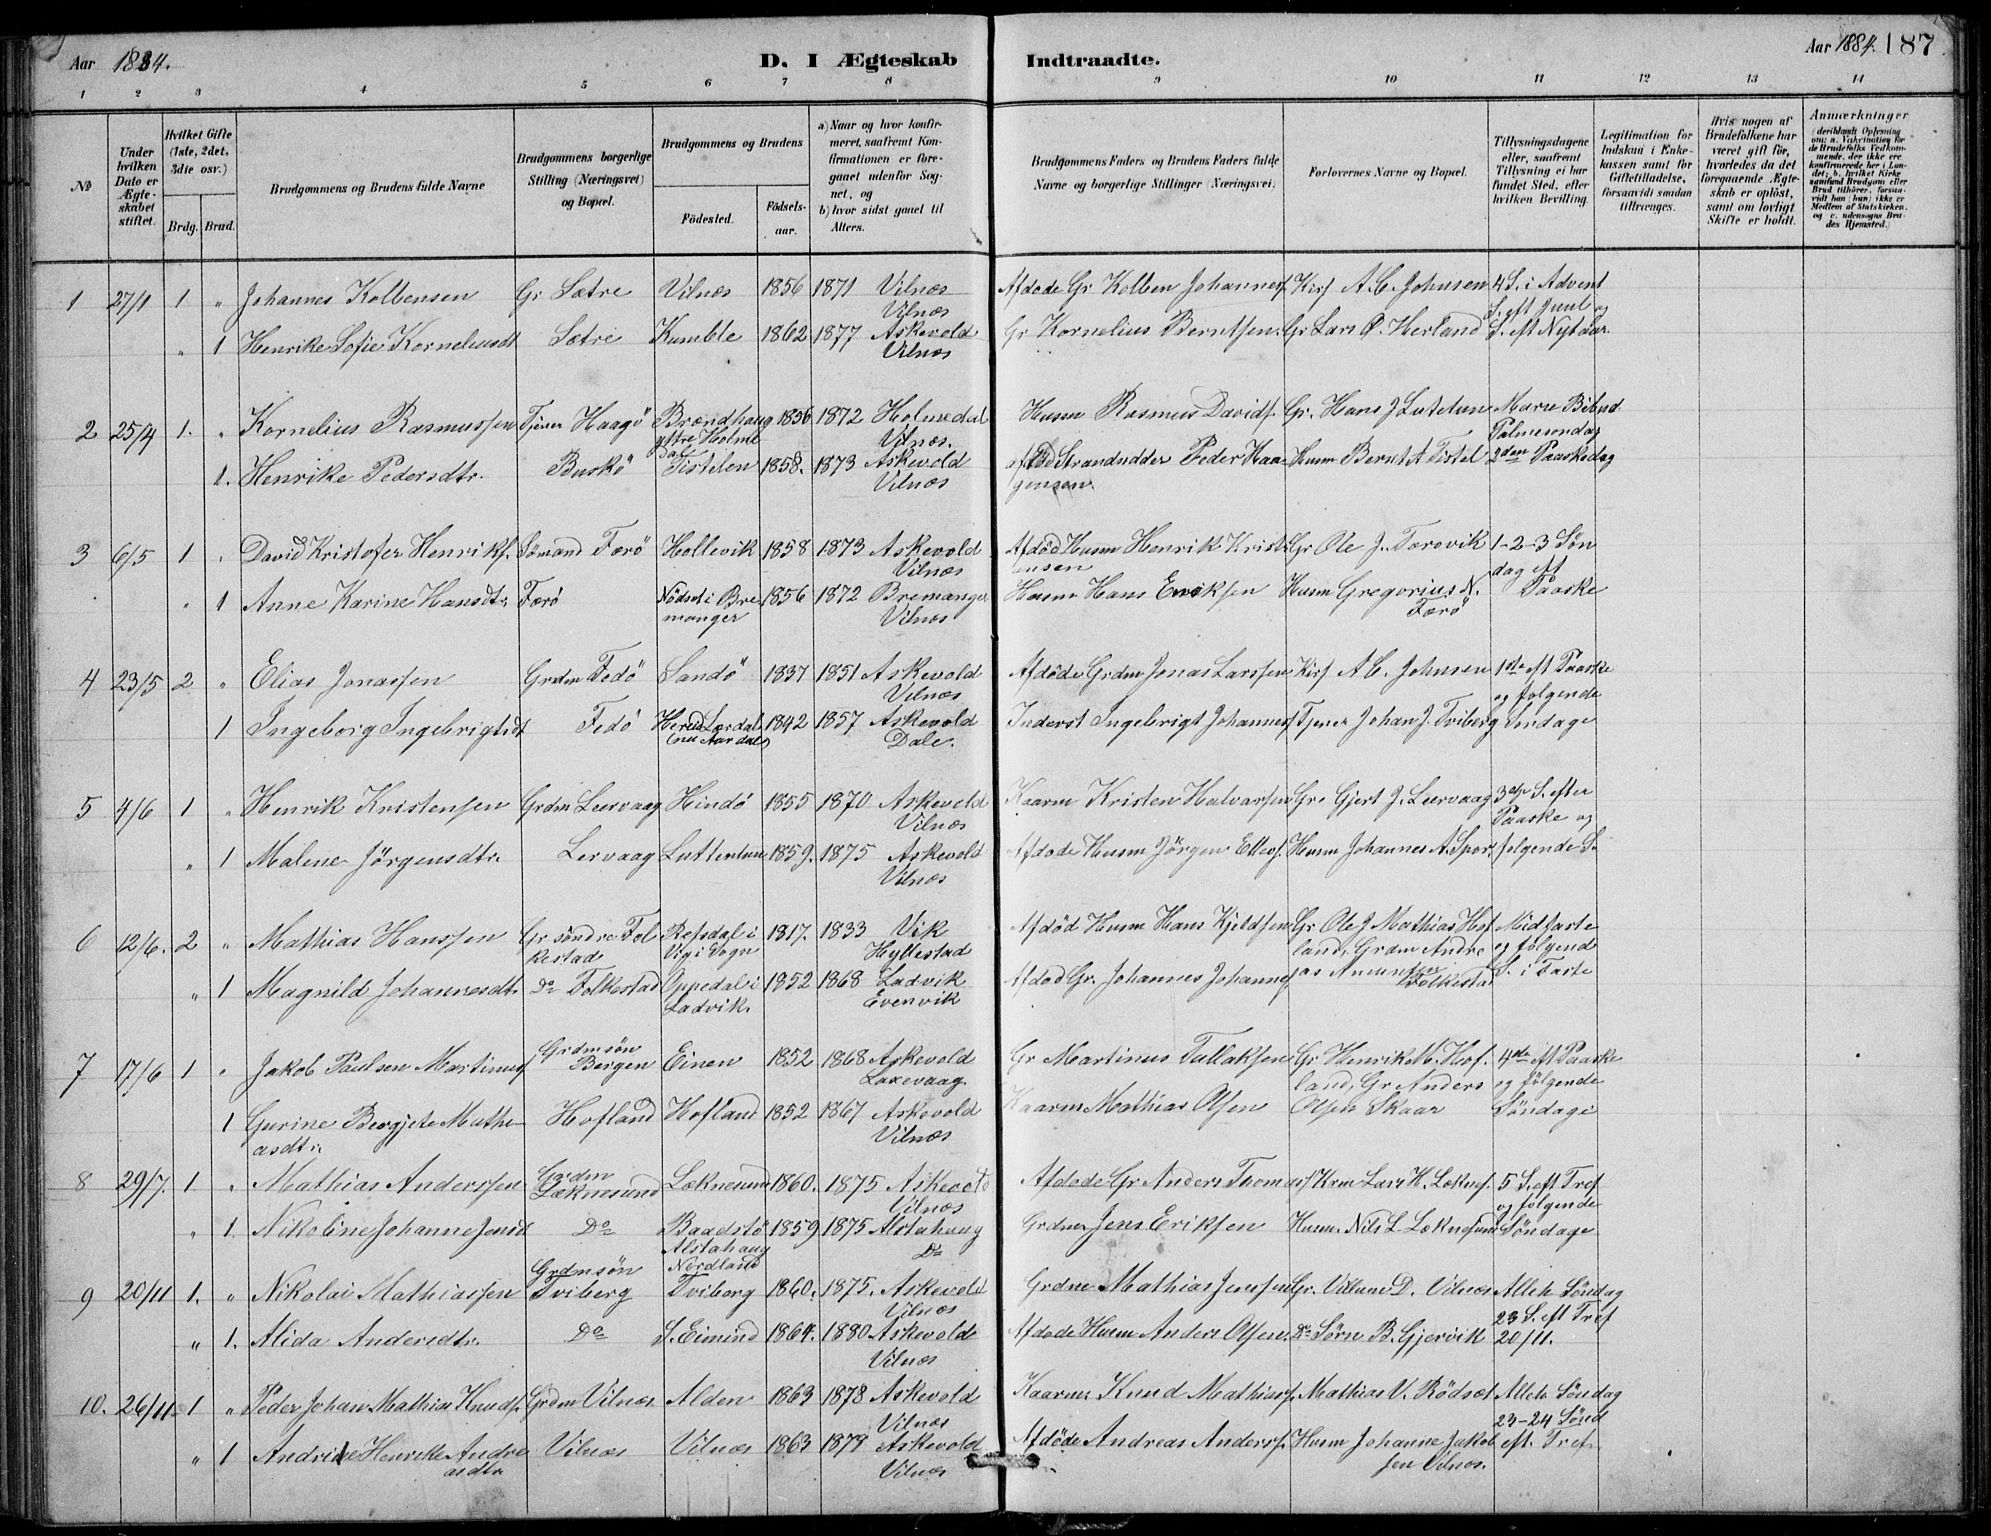 Aar 1884. D. I Ægteskab Indtraadte. Aar 1884. 187
1 2 3 4 5 6 7 8 9 10 11 12 13 14
No
Under hvilken Dato er Ægteskabet stiftet.
Hvilket Gifte (1ste, 2det, 3die osv.)
Brdg. Brud.
Brudgommens og Brudens fulde Navne
Brudgommens borgerlige Stilling (Næringsvei) og Bopæl.
Brudgommens og Brudens
Födested. Födselsaar.
a) Naar og hvor konfirmeret, saafremt Konfirmationen er foregaaet udenfor Sognet, og
b) hvor sidst gaaet til Alters.
Brudgommens Faders og Brudens Faders fulde Navne og borgerlige Stillinger (Næringsvei)
Forlovernes Navne og Bopæl.
Tillysningsdagene eller, saafremt Tillysning ei har fundet Sted, efter hvilken Bevilling.
Legitimation for Indskud i Enkekassen samt for Giftetilladelse, forsaavidt saadan tiltrænges.
Hvis nogen af Brudefolkene har været gift før, hvorledes da det foregaaende Ægteskab er opløst, samt om lovligt Skifte er holdt.
Anmærkninger (deriblandt Oplysning om: a. Vakcination for de Brudefolks Vedkommende, der ikke ere konfirmerede her i Landet; b. hvilket Kirkesamfund Brudgom eller Brud tilhører, forsaavidt han (hun) ikke er Medlem af Statskirken, og c. udensogns Brudes Hjemsted.)
1 27/1 1 " Johannes Kolbensen Gr Sætre Vilnæs 1856 1871 Vilnæs Afdøde Gr Kolben Johannesf Kirs A. C. Johnsen 4 S. i Advent
Vilnæs S. eft Juul og
" 1 Henrike Sofie Korneliusdt Sætre Kumble 1862 1877 Askevold Gr Kornelius Berntsen. Gr Lars O. Herland S. eft Nytaar
Vilnæs
2 25/4 1. " Kornelius Rasmussen Tjener Haagö Brændhaug 1856 1872 Holmedal Husm Rasmus Davidf. Gr. Hans J Lutelun Marie Bebud
yttre Holme Vilnæs. Palmesöndag
dal
1. Henrike Pedersdtr. Buskö Tistelen 1858. 1873 Askevold afdød Strandsidder Peder Haa Husm Bernt A Tistel 2den Paaskedag
Vilnæs gensen
3 6/5 1 . David Kristofer Henrikf. Sømand Færö Hollevik 1858 1873 Askevold Afdöd Husm Henrik Krist Gr Ole J. Færovik 1-2-3 Søn
Vilnæs ensen dag eft
" 1 Anne Karine Hansdtr. Færö Nödset i Bre 1856 1872 Bremanger Husm Hans Eriksen Husm Gregorius N. Paaske
manger Vilnæs Færö
4 23/5 2 " Elias Jonassen Grdm Fedö Sandö 1837 1851 Askevold Afdöde Grdm Jonas Larssen Kirs A. C. Johnsen 1ste eft Paaske
Vilnæs og følgende
1 Ingeborg Ingebrigtsdt Fedö Hereid Lærdal 1842 1857 Askevold Inderst Ingebrigt Johannesf Tjener Johan J. Tviberg Söndage
(nu Aardal) Dale.
5 4/6 1 " Henrik Kristensen Grdm Leervaag Hindö 1855 1870 Askevold Kaarm Kristen Halvorsen Gr. Gjert J. Leervaag 3die S. efter
Vilnæs Paaske og
" 1 Malene Jörgensdtr. Lervaag Luttentun 1859. 1875 Askevold Afdøde Husm Jörgen Ellefs. Husm Johannes A. Spor. følgende S.
Vilnæs
6 12/6. 2 " Mathias Hanssen Gr söndre Fol Refsdal i 1817. 1833 Vik Afdød Husm Hans Kjeldsen Gr Ole J Mathias Hof Midfaste
kestad Vig i Sogn Hyllestad land, Grdm Andre og følgend
" 1 Magnild Johannesdt. Do Folkestad Oppedal i 1852 1868 Ladvik Afdød Gr. Johannes Johannesf as Amundsen S. i Faste
Ladvik. Evenvik Folkestad
7 17/6 1 " Jakob Paulsen Martinusf Grdmsön Einen 1852 1868 Askevold Gr Martinus Tallaksen Gr Henrik M. Hof. 4de eft Paaske
Bergen Laxevaag. land, Gr Anders og følgende
1 Gurine Bergjete Mathe Hofland Hofland 1852 1867 Askevold Kaarm Mathias Olsen Olsen Skaar Söndage
asdtr. Vilnæs
8 29/7. 1 " Mathias Anderssen Grdm Læknesund 1860. 1875 Askevold Afdøde Gr Anders Thomasf Krm Lars H. Læknes. 5 S. eft Tref
Læknesund Vilnæs og følgende
" 1. Nikoline Johanne Jensd Do Baadstö 1859 1875 Alstahaug Grdm Jens Eriksen Husm. Nils L Læknesund Søndage
Alstahaug Do
Grdmsön Nordland
9 20/11 1. " Nikolai Mathiassen Tviberg Tviberg 1860. 1875. Askevold Grdm Mathias Jensen Gr. Villum D. Vilnæs Alleh Söndag
Vilnæs 23 S. eft Tref
" 1. Alida Andersdtr. Do S. Eimind 1864. 1880 Askevold Afdøde Husm Anders Olsen. Do Sørn B. Gjervik 20/11.
Vilnæs
10. 26/11. 1 " Peder Johan Mathias Knudf. Grdm Vilnæs Alden 1863 1878 Askevold Kaarm Knud Mathiasf. Mathias V. Rödset Alleh Söndag
Vilnæs 23-24 Sönd
" 1 Andrine Henrike Andre Vilnæs Vilnæs 1863 1879 Askevold Afdöde Andreas Andersf. Husm Johanne Jakob eft. Tref
asdtr Vilnæs sen Vilnæs.